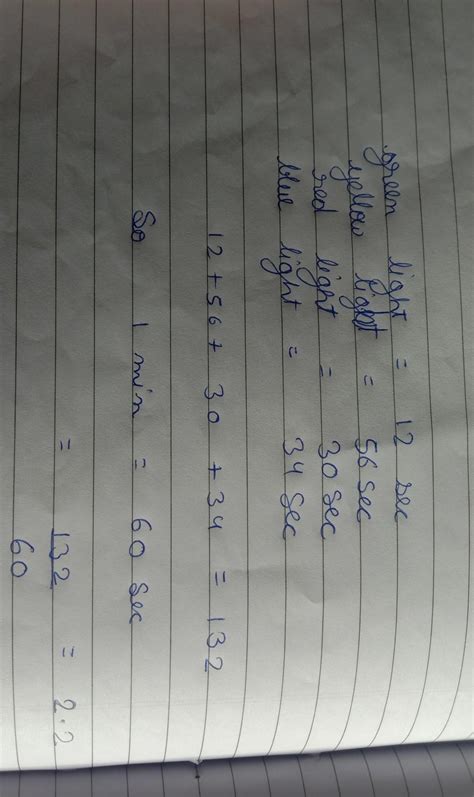 green light = 12 sec
yellow light = 56 sec
red light = 30 sec
blue light = 34 sec
12 + 56 + 30 + 34 = 132
So 1 min = 60 sec
= 132/60 = 2.2